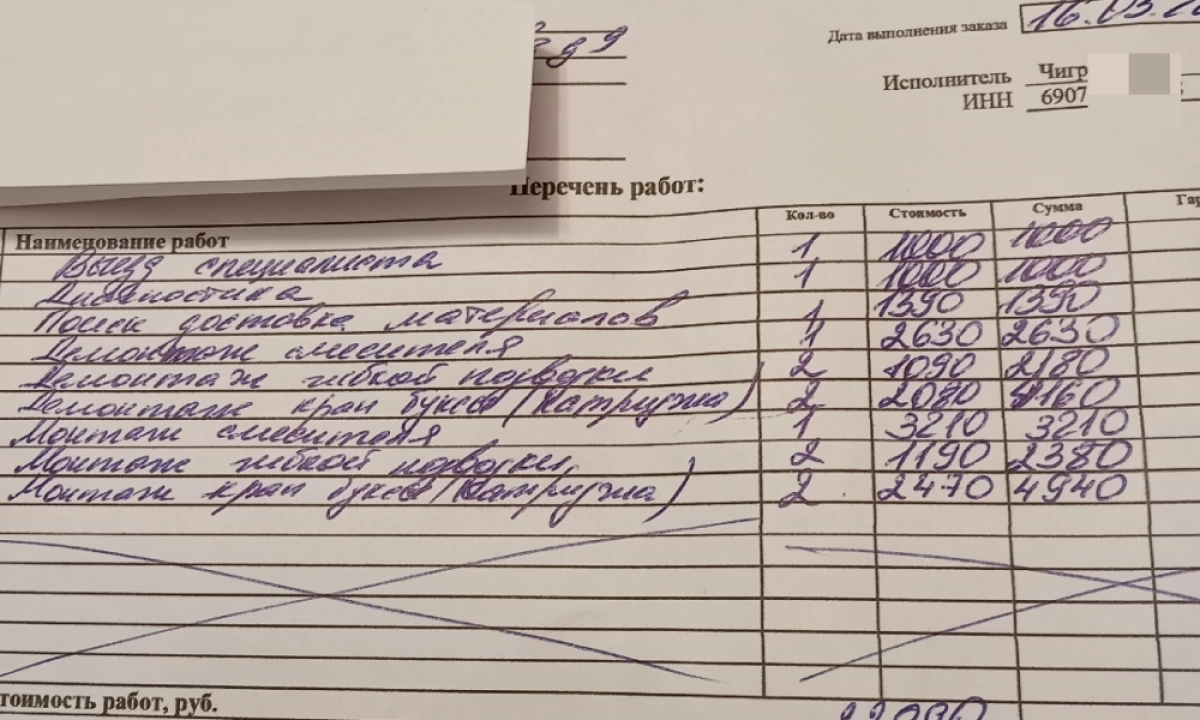 Дата выполнения заказа 16.03.
Исполнитель Чигр
ИНН 6907
Перечень работ:
Наименование работ Кол-во Стоимость Сумма Гар
Выезд специалиста 1 1000 1000
Диагностика 1 1000 1000
Поиск доставка материалов 1 1390 1390
Демонтаж смесителя 1 2630 2630
Демонтаж гибкой подводки 2 1090 2180
Демонтаж кран буксы (Катриджа) 2 2080 4160
Монтаж смесителя 1 3210 3210
Монтаж гибкой подводки 2 1190 2380
Монтаж кран буксы (Катриджа) 2 2470 4940
тоимость работ, руб.